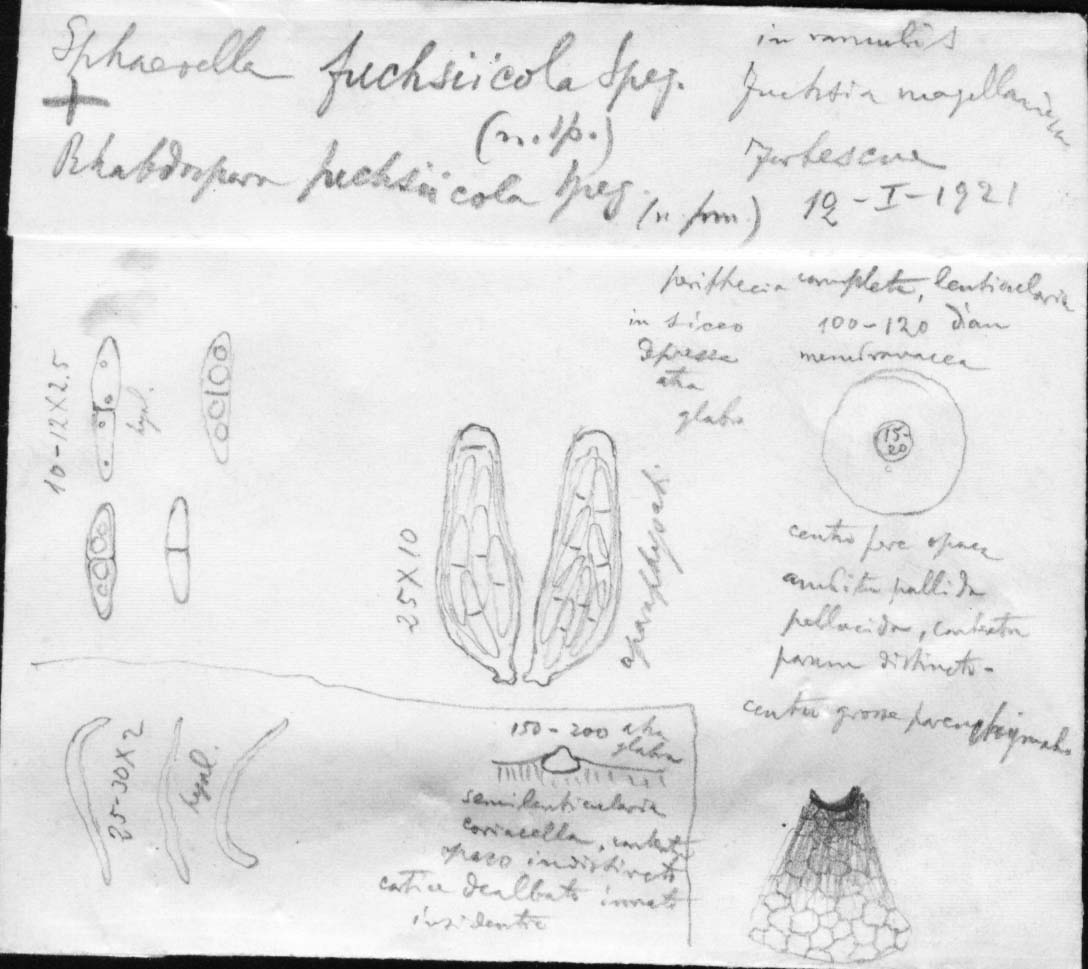 Sphaerella fuchsiicola Speg.
+ (n. sp.)
Rhabdospora fuchsiicola Speg. (n. form.)
in ramulis
Fuchsia magellanica
Fortescue
12-I-1921
perithecia complete, lenticularia
in sicco 100-120 diam
depressa membranacea
atra
glabra
15-
20
centro fere opaca
ambitu pallida
pellucida, contextu
parum distincto-
centro grosse parenchymatic
10-12X2.5
hyal.
25X10
aparaphysati.
25-30X2
hyal.
150-200 atra
glabra
semilenticularia
coriacella, contextu
opaco indistincto
cortice dealbato innato
insidentia